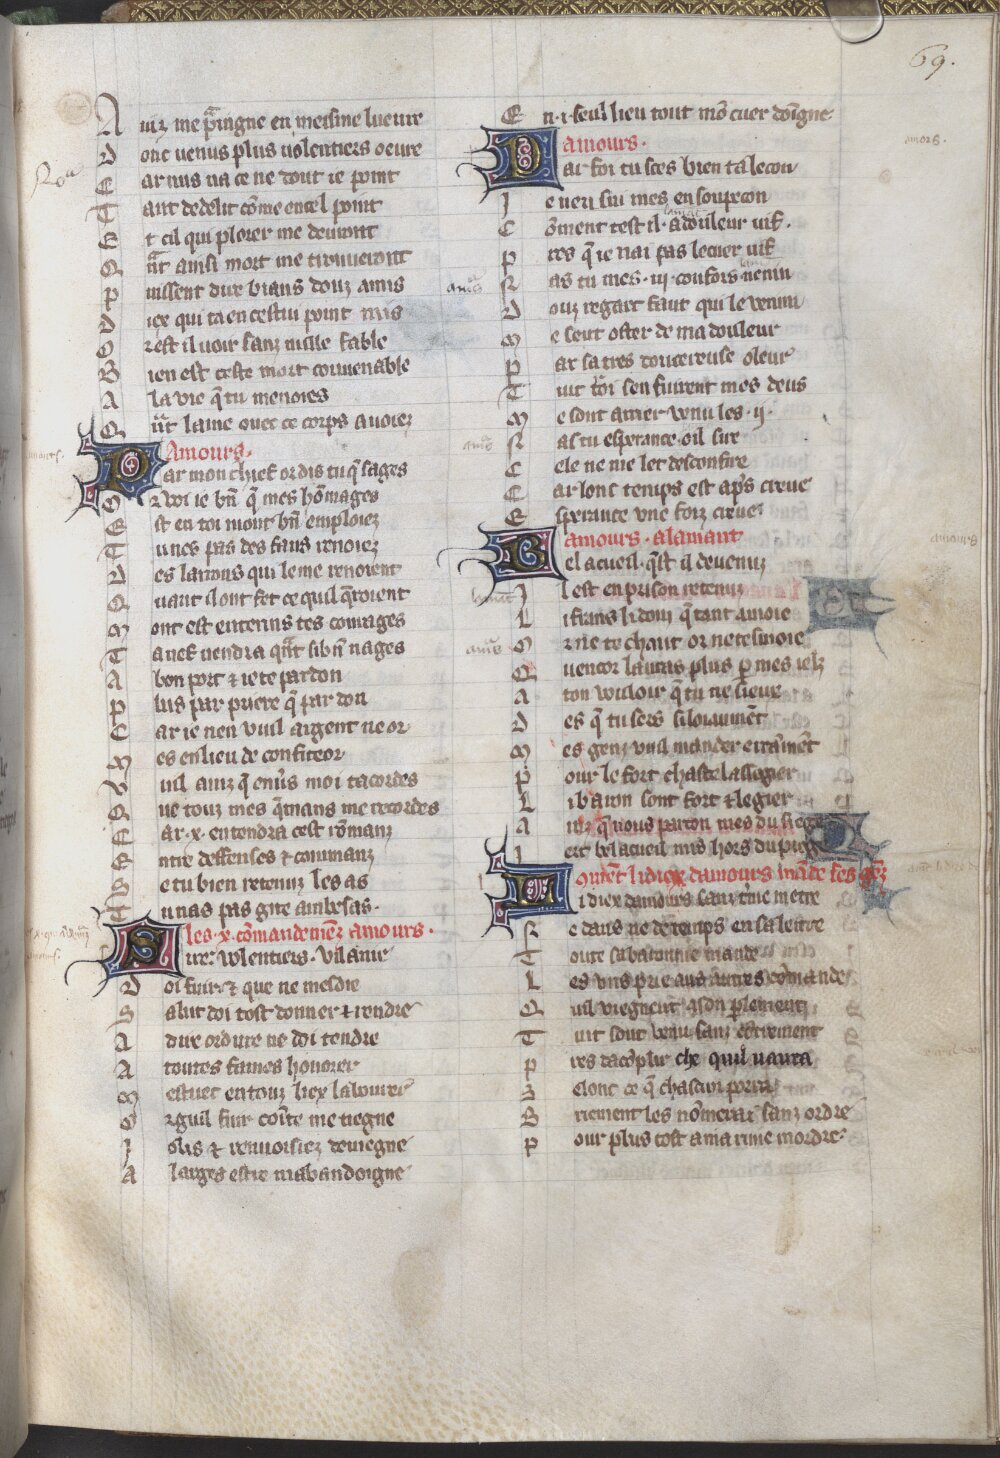 69.
Ainz me p̃aingne en meisme lueure
Donc uenus plus uolentiers oeure
Car nus na ce ne dout ie point
Tant de delit cõme en cel point
Et cil qui plorer me deuront
Qñt ainsi mort me trouueront
Puissent dire biaus douz amis
Dieu qui ta en cestui point mis
Or est il uoir sanz nulle fable
Bien est ceste mort couuenable
A la vie q̃ tu menoies
Qñt lame ouec ce corps auoiez
Amours.
Par mon chief or dis tu q̃ sages
Or voi ie bñ q̃ mes hõmages
Est en toi mont bñ emploiez
Tu nes pas des faus renoiez
Des larrons qui le me renoient
Quant il ont fet ce quil q̃roient
Mont est enterins tes courages
Ta nef uendra qñt si bñ nages
A bon port & ie te pardon
Plus par priere q̃ par don
Car ie nen vueil argent ne or
Mes en lieu de confiteor
Vueil ainz q̃ en uers moi tacordes
Que touz mes q̃mans me recordes
Car .x. en tendra cest rõmanz
Entre deffenses & conmanz
Se tu bien retenuz les as
Tu nas pas gñte ambesas.
les .x. cõmandemẽz amours.
Sire uolentiers. Vilanie
Doi fuir. & que ne mesdie
Salut doi tost donner & rendre
A dire ordure ne doi tendre
A toutes fames honorer
Mestuet en touz liex labourer
Orguil fuir cointe me tiegne
Jolis & renuoisiez deuiegne
A larges estre mabandoigne
En .i. seul lieu tout mõ cuer dõigne
amours.
Par foi tu sces bien ta lecon
Je neu sui mes en soupecon
Cõment test il. a douleur uif.
Pres q̃ ie nai pas le cuer uif
Nas tu mes .iii. confors nenin
Douz regart faut qui le venin
Me seut oster de ma douleur
Par sa tres doucereuse oleur
Tuit troi sen fuirent mes deus
Me sont arrier venu les .ii.
Nas tu esperance. oil sire
Cele ne me let desconfire
Car lonc temps est apres creue
Esperance une foiz creue
amours. a lamant
Bel acueil. q̃st il deuenuz
Il est en prison retenuz
Li frans li douz q̃ tant amoie
Or ne te chaut or ne tesmoie
Quencor lauras plus p mes ielz
A ton vouloir q̃ tu ne sieux
Des q̃ tu sers si loiaumẽt
Mes genz vueil mander erramẽt
Pour le fort chastel assegier
Li baron sont fort & legier
Ainz q̃ nous parton mes du siege
Iert bel acueil mis hors du piege
Li diex damours sanz tme metre
Ne dans ne de temps en sa lettre
Toute sa baronnie mande
Les vns prie aus autres comande
Quil viegnent a son plement
Tuit sont venu sanz contrement
Pres dacõplir che quil uaura
Selonc ce q̃ chascun porra
Briement les nõmerai sanz ordre
Pour plus tost a ma rime mordre